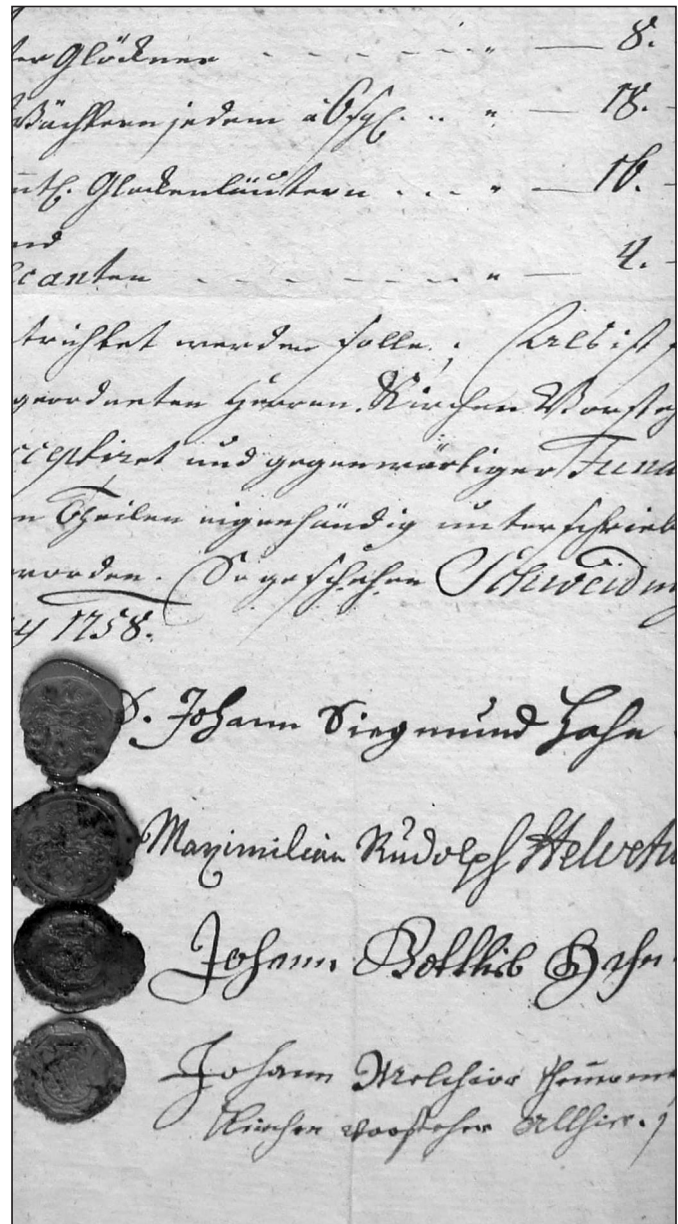 der Glöckner - - - - - " — 8.
Wächtern jedem à 6 sgl. .. " — 18.
Glockenläutern . . . " — 16.
und
canten - - - - - - " — 4.
trichtet werden solle; Als ist
geordneten Herren Kirchen Vorsteh
cceptiret und gegenwärtiger Funda
n Theilen eigenhändig unterschrieb
worden. So geschehen Schweidni
1758.
D. Johann Siegmund Hahn
Maximilian Rudolph Helvetiu
Johann Gottlieb Hahn
Johann Melchior
Kirchen vorsteher Allhier.